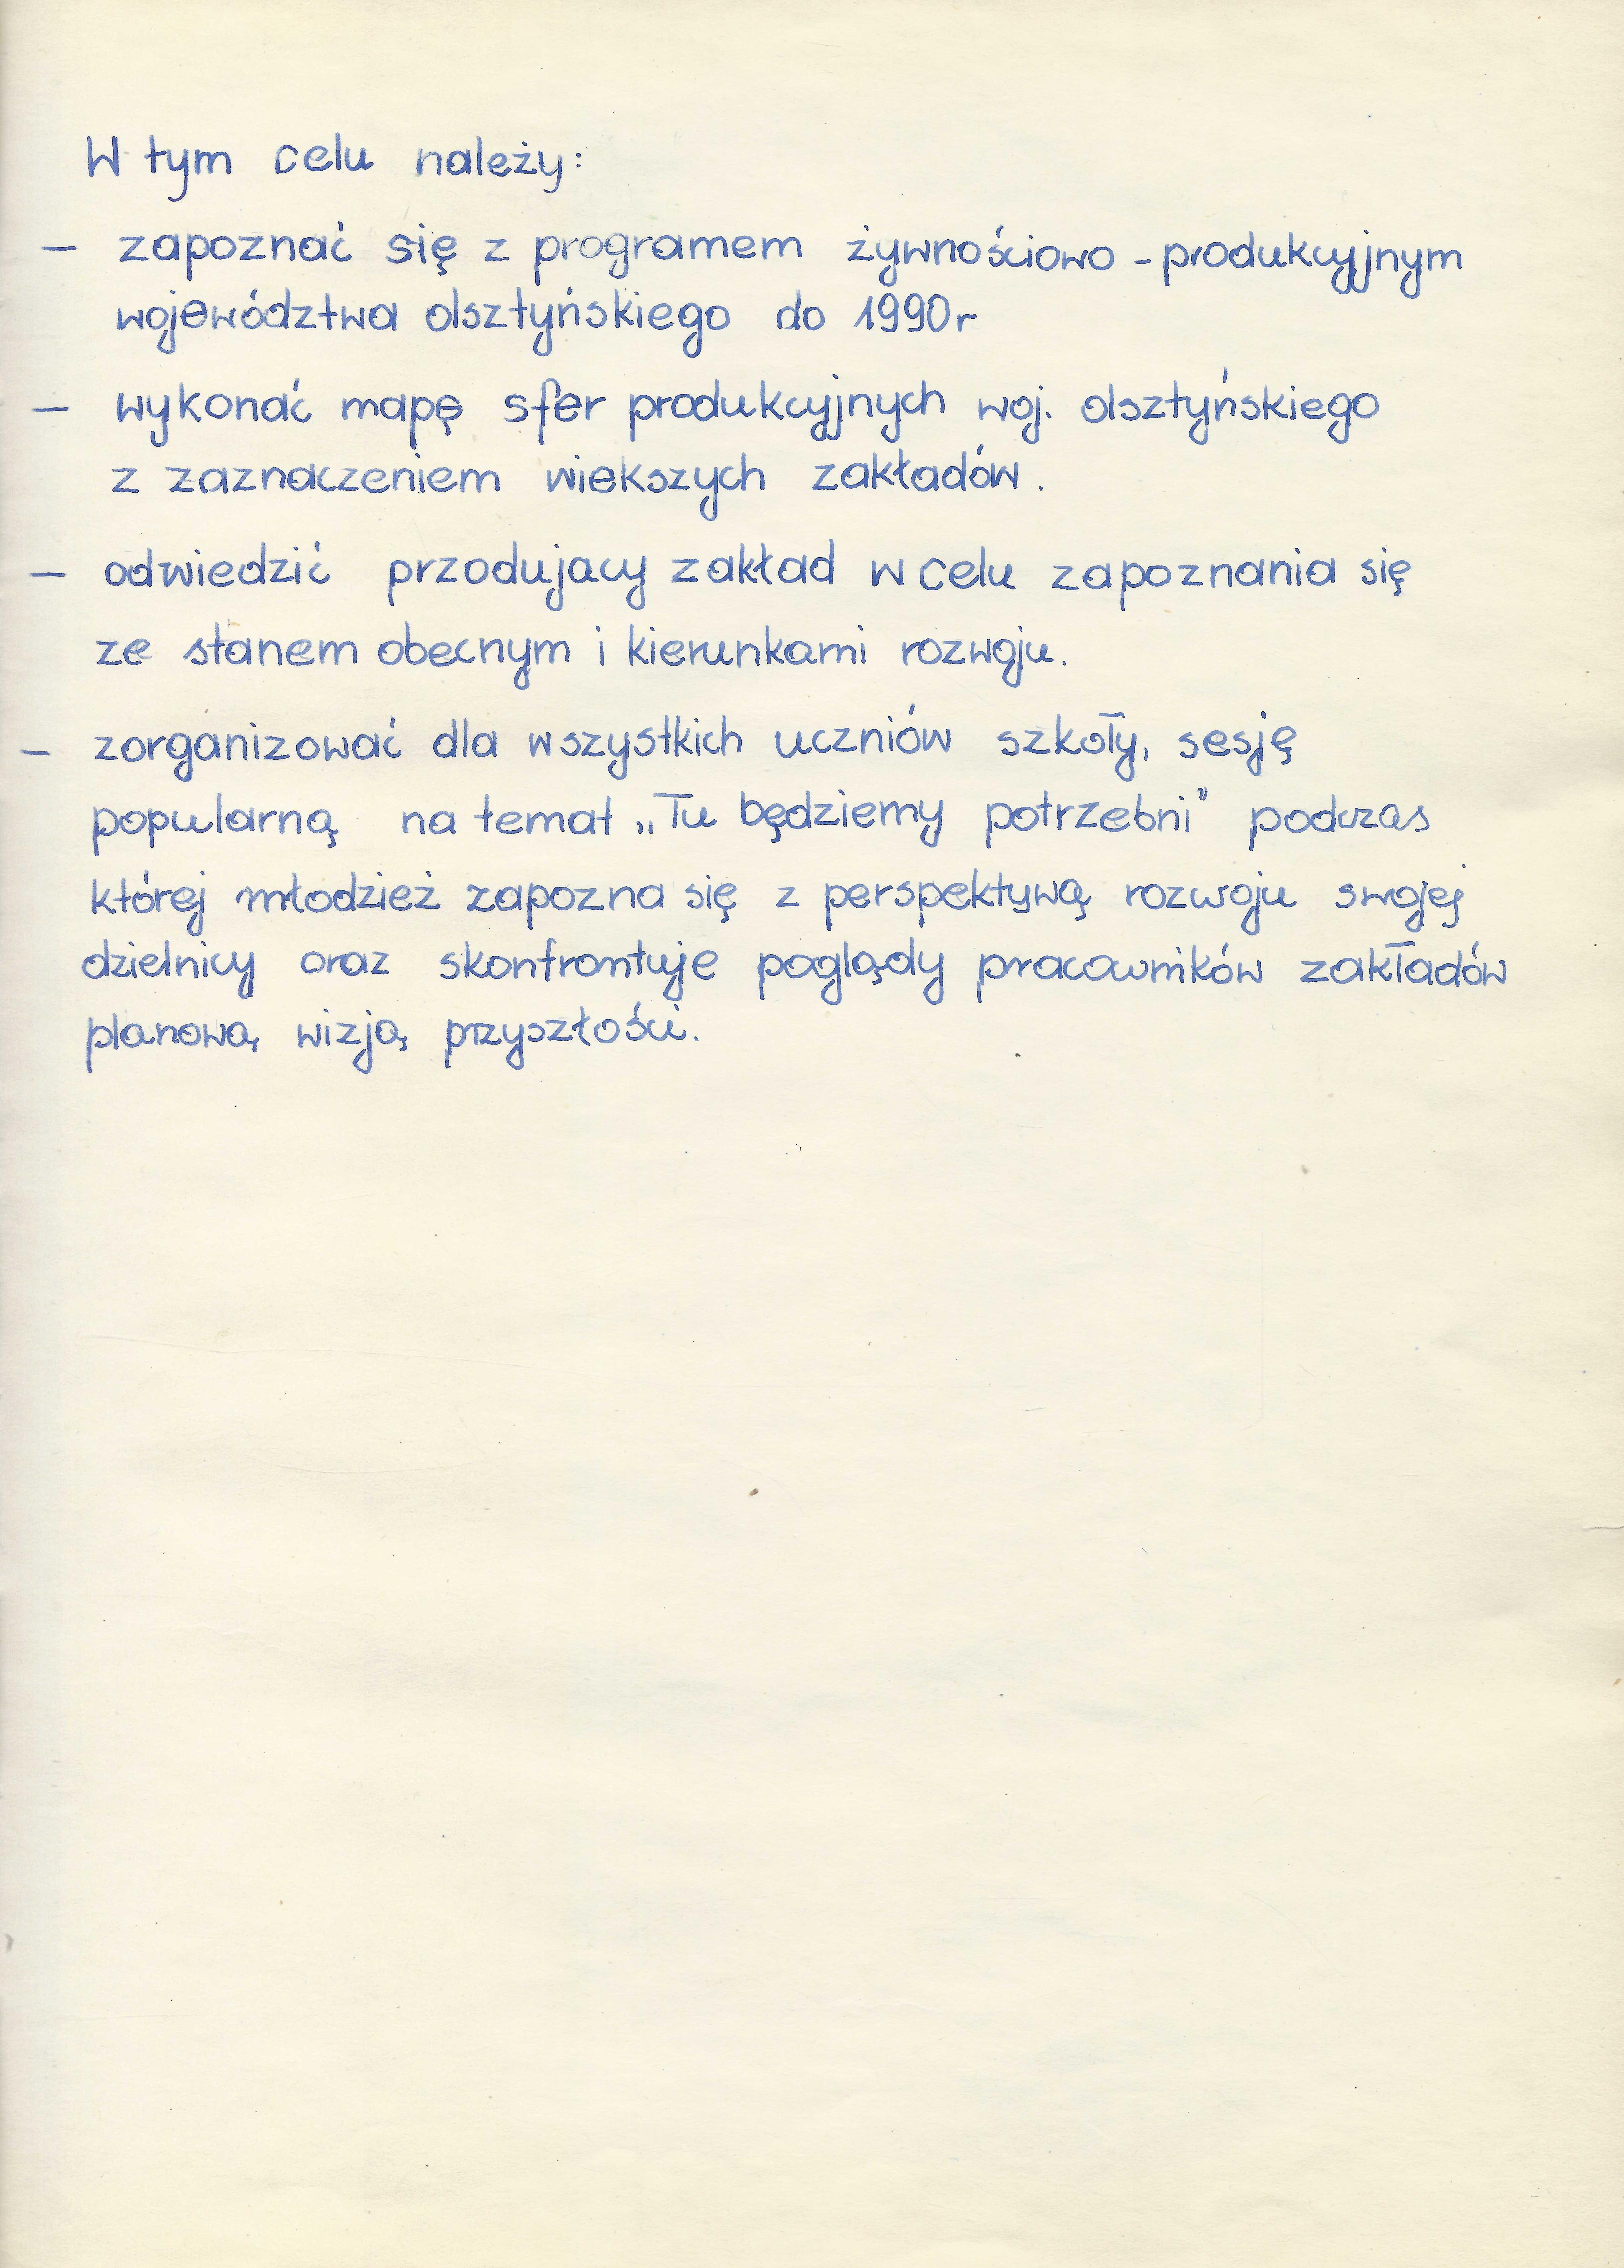 W tym celu należy:
— zapoznać się z programem żywnościowo - produkcyjnym
województwa olsztyńskiego do 1990r
— wykonać mapę sfer produkcyjnych woj. olsztyńskiego
z zaznaczeniem wiekszych zakładów.
— odwiedzić przodujacy zakład w celu zapoznania się
ze stanem obecnym i kierunkami rozwoju.
— zorganizować dla wszystkich uczniów szkoły, sesję
popularną na temat „Tu będziemy potrzebni" podczas
której młodzież zapozna się z perspektywą rozwoju swojej
dzielnicy oraz skonfrontuje poglądy pracowników zakładów
planową wizją przyszłości.